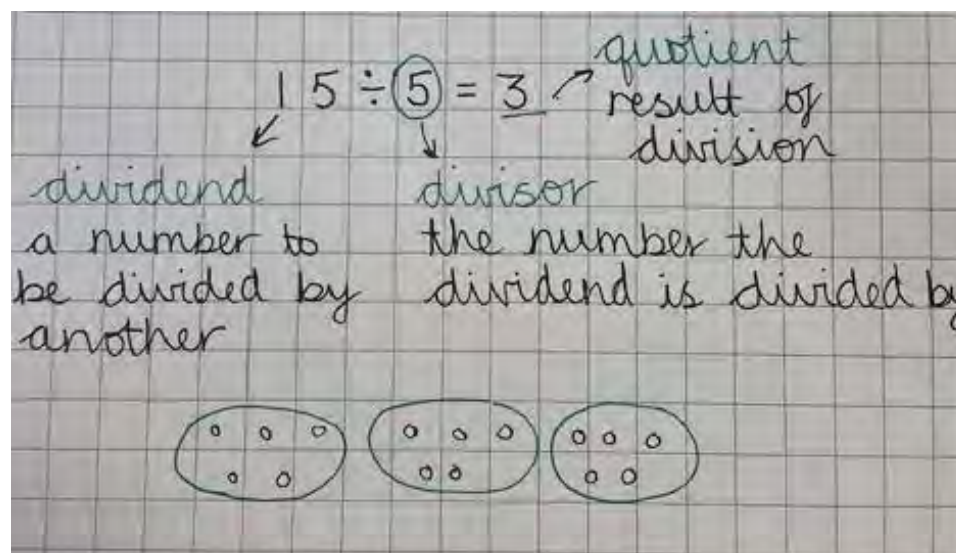 15 ÷ 5 = 3
quotient
result of
division
dividend
a number to
be divided by
another
divisor
the number the
dividend is divided by